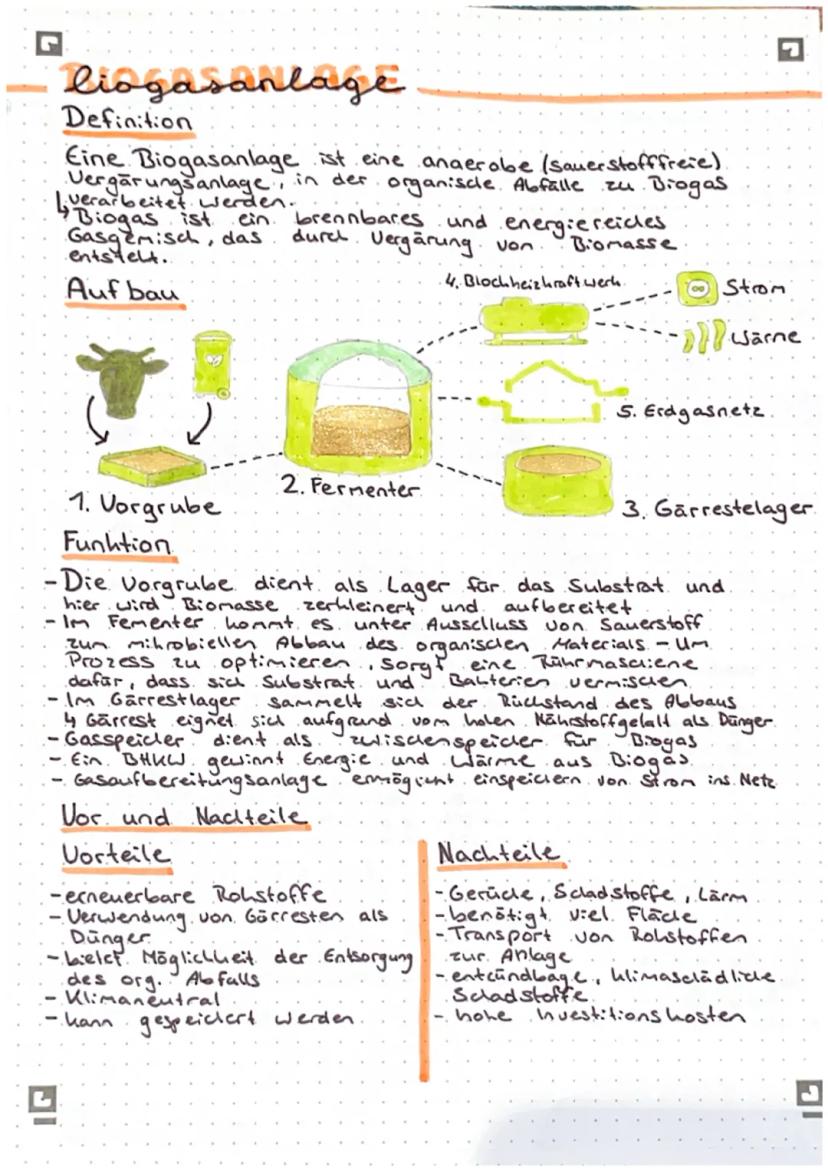 BIOGASANLAGE
biogasanlage
Definition
Eine Biogasanlage ist eine anaerobe (sauerstofffreie)
Vergärungsanlage, in der organische Abfälle zu Biogas
verarbeitet werden.
↳ Biogas ist ein brennbares und energiereiches
Gasgemisch, das durch Vergärung von Biomasse
entsteht.
Aufbau
4. Blockheizkraftwerk
Strom
Wärme
5. Erdgasnetz
1. Vorgrube
2. Fermenter
3. Gärrestelager
Funktion
- Die Vorgrube dient als Lager für das Substrat und
hier wird Biomasse zerkleinert und aufbereitet
- Im Fementer kommt es unter Ausschluss von Sauerstoff
zum mikrobiellen Abbau des organischen Materials - Um
Prozess zu optimieren, sorgt eine Rührmaschiene
dafür, dass sich Substrat und Bakterien vermischen
- Im Gärrestlager sammelt sich der Rückstand des Abbaus
↳ Gärrest eignet sich aufgrund vom hohen Nährstoffgehalt als Dünger
- Gasspeicher dient als zwischenspeicher für Biogas
- Ein BHKW gewinnt Energie und Wärme aus Biogas
- Gasaufbereitungsanlage ermöglicht einspeichern von Strom ins Netz
Vor und Nachteile
Vorteile
- erneuerbare Rohstoffe
- Verwendung von Gärresten als
Dünger
- bietet Möglichkeit der Entsorgung
des org. Abfalls
- Klimaneutral
- kann gespeichert werden
Nachteile
- Gerüche, Schadstoffe, Lärm
- benötigt viel Fläche
- Transport von Rohstoffen
zur Anlage
- entzündbage, klimaschädliche
Schadstoffe
- hohe Investitionskosten